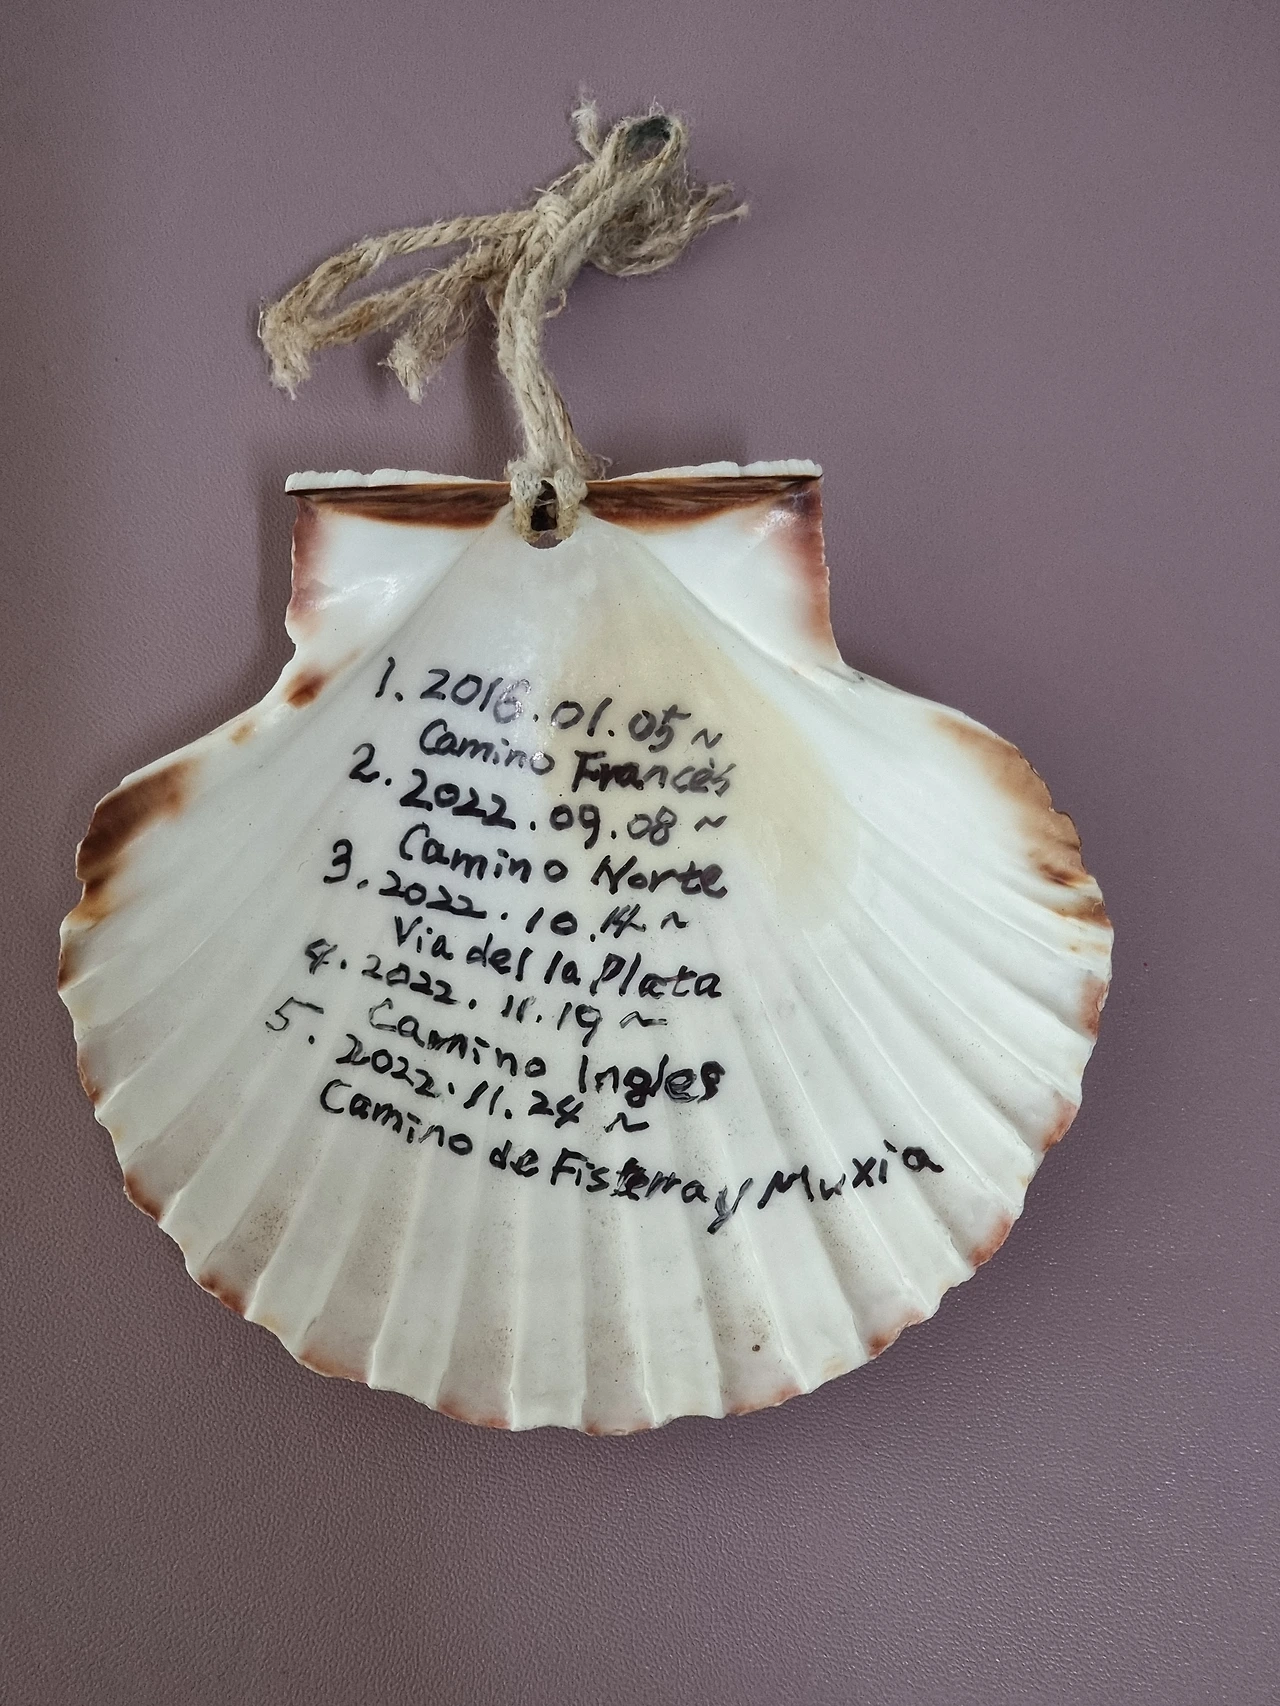 1. 2016.01.05~
Camino Francés
2. 2022.09.08~
Camino Norte
3. 2022.10.14~
Via del la Plata
4. 2022.11.19~
Camino Ingles
5. 2022.11.24~
Camino de Fisterra y Muxia